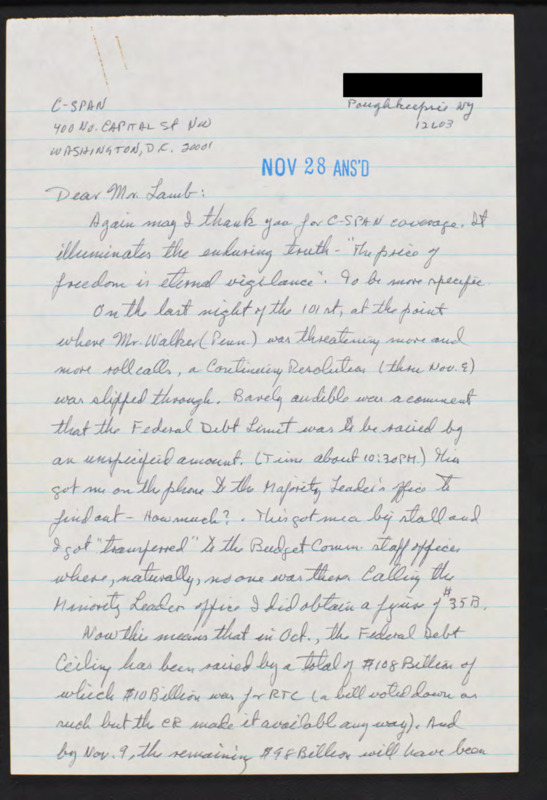 C-SPAN
400 No. CAPITAL ST NW
WASHINGTON, D.C. 20001
Poughkeepsie NY
12603
NOV 28 ANS'D
Dear Mr. Lamb:
Again may I thank you for C-SPAN coverage. It
illuminates the enduring truth - "The price of
freedom is eternal vigilance". To be more specific
On the last night of the 101st, at the point
where Mr. Walker (Penn.) was threatening more and
more roll calls, a Continuing Resolution (thru Nov. 9)
was slipped through. Barely audible was a comment
that the Federal Debt Limit was to be raised by
an unspecified amount. (Time about 10:30 PM.) This
got me on the phone to the Majority Leader's office to
find out - How much?. This got me a big stall and
I got "transferred" to the Budget Comm. staff offices
where, naturally, no one was there. Calling the
Minority Leader office I did obtain a figure of $35B.
Now this means that in Oct., the Federal Debt
Ceiling has been raised by a total of $108 Billion of
which $10 Billion was for RTC (a bill voted down as
such but the CR make it availabl any way). And
by Nov. 9, the remaining $98 Billion will have been